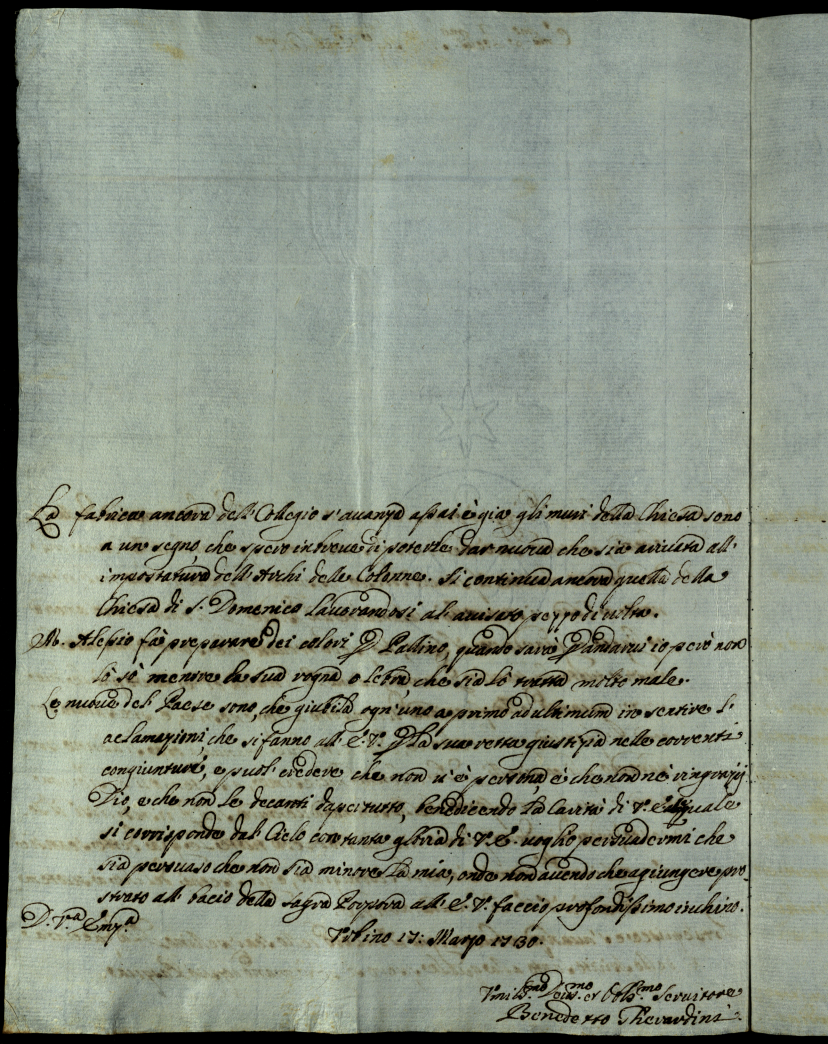 La fabrica ancora dell' Collegio s'avanza assai è già gli muri della Chiesa sono
a un segno che spero in breve di poterle dar nuova che sia arrivata all'
impostatura dell' Archi delle Colonne. Si continua ancora quella della
Chiesa di S. Domenico Lavorandosi al' avisato pezzo di volta.
M. Alessio fà preparare dei colori Pallino, quando sarà andarvi io però non
lo sò mentre la sua rogna o lebra, che sia lo tratta molto male.
Le nuove del' Paese sono, che giubila ogn'uno a primo ad ultimum in sentire l'
aclamazioni, che si fanno all' E. V. la sua retta giustizia nelle correnti
congiunture, e puol' credere che non v'è persona, è che non nè ringrazij
Dio, e che non Le decanti dapertutto, benedicendo La Carità di V. E. quale
si corrisponde dal' Cielo con tanta gloria di V. E. voglio persuadermi che
sia persuaso che non sia minore La mia, onde non avendo che agiungere pro-
strato all' bacio della sagra Porpora all' E. V. faccio profondissimo inchino.
D. V.ra Emz.a
Urbino 17: Marzo 1730.
Umilis.mo Devs.mo et Obb.mo Servitore
Benedetto